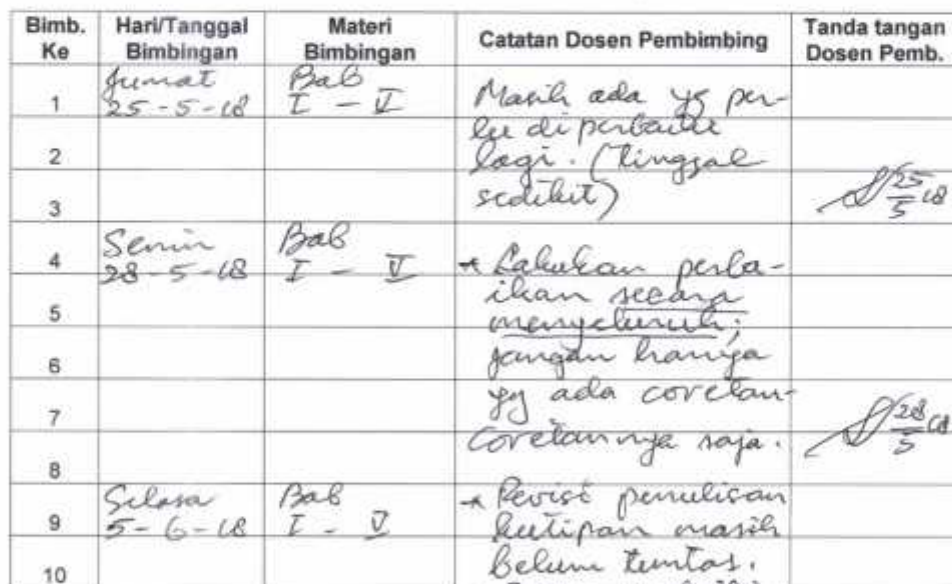 Bimb. Ke Hari/Tanggal Bimbingan Materi Bimbingan Catatan Dosen Pembimbing Tanda tangan Dosen Pemb.
Jumat Bab
1 25-5-18 I - V Masih ada yg per-
lu diperbaiki
2 lagi. (tinggal
sedikit) 25/5 18
3
Senin Bab
4 28-5-18 I - V * Lakukan perba-
ikan secara
5 menyeluruh;
6 jangan hanya
yg ada coretan-
7 coretannya saja. 28/5 18
8
Selasa Bab * Revisi penulisan
9 5-6-18 I - V kutipan masih
10 belum tuntas.